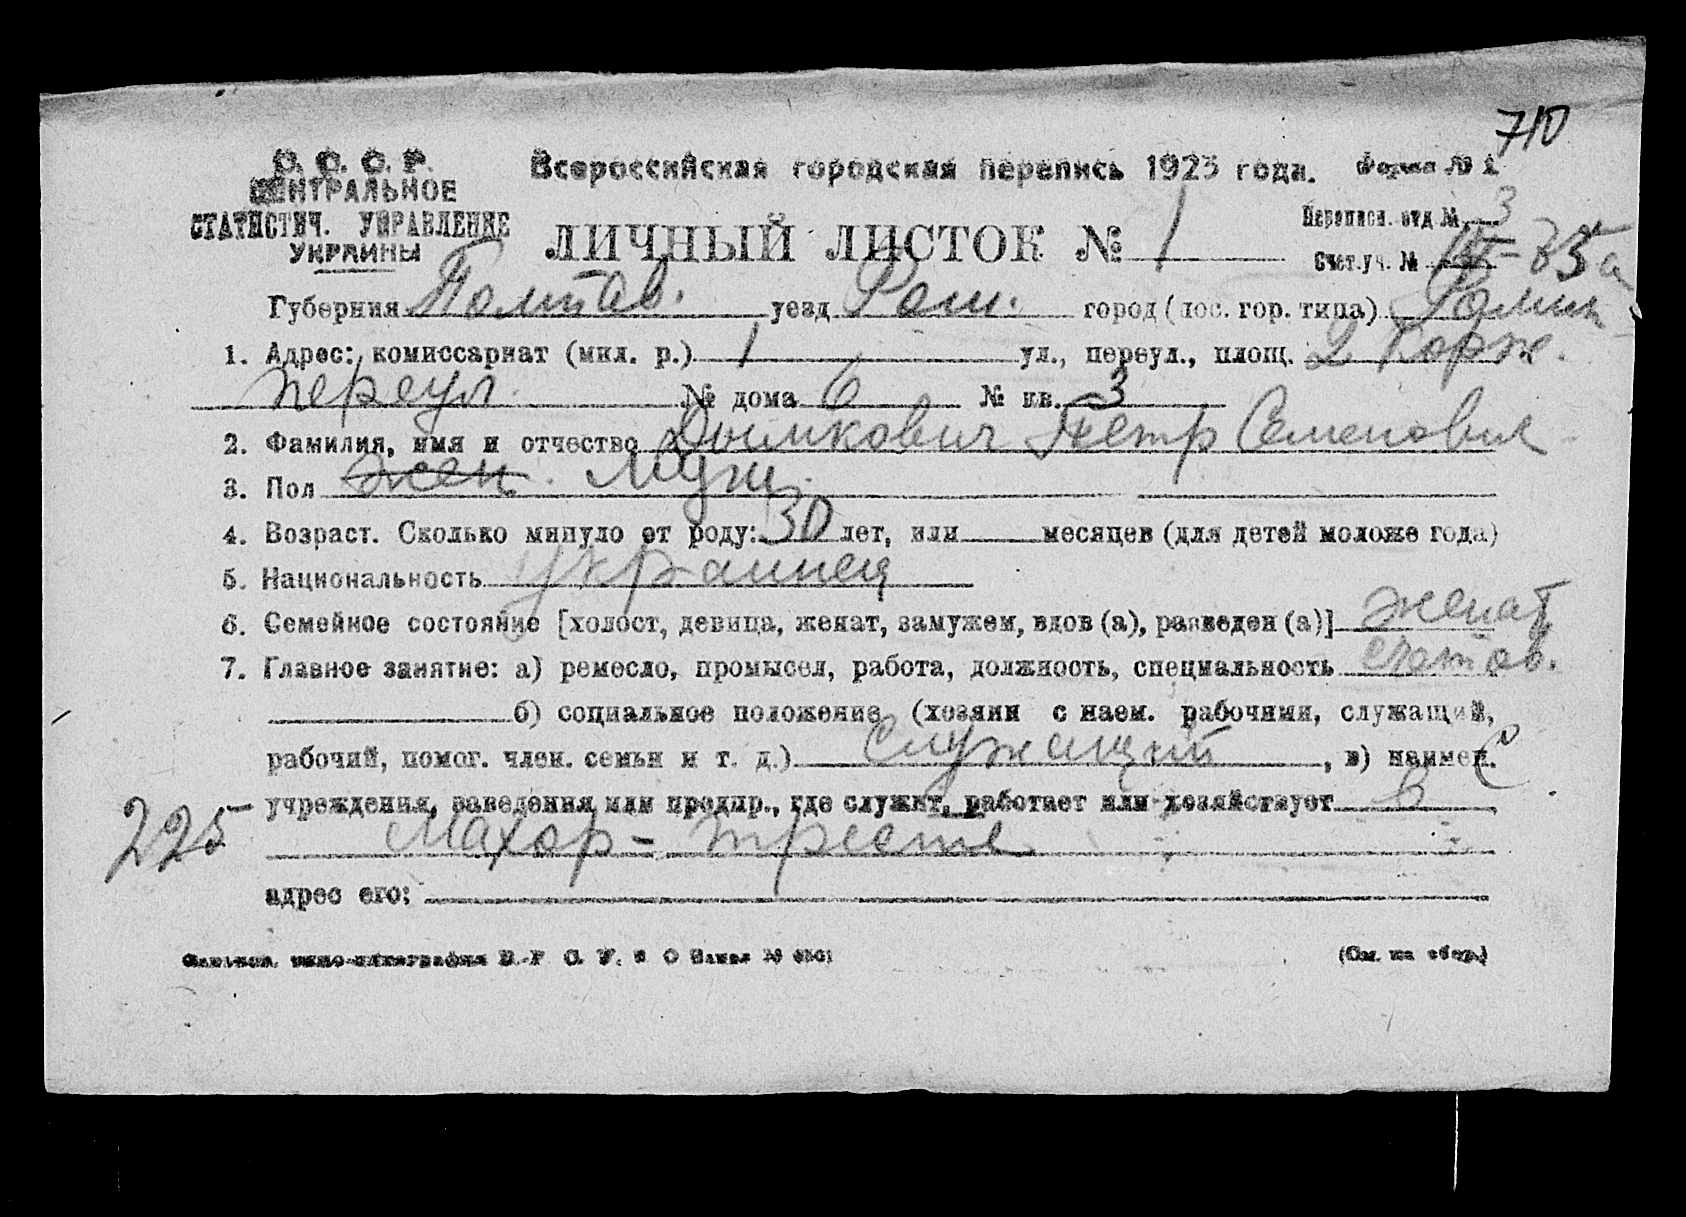 710
С. С. С. Р.
ЦЕНТРАЛЬНОЕ
СТАТИСТИЧ. УПРАВЛЕНИЕ
УКРАИНЫ
Всероссийская городская перепись 1923 года. Форма № 1
ЛИЧНЫЙ ЛИСТОК № 1
Переписн. отд. № 3
Счет. уч. №
Губерния Полтав. уезд Ром. город (пос. гор. типа) Ромны
1. Адрес: комиссариат (мил. р.) 1 ул., переул., площ. 2 Корж.
переул. № дома 6 № кв. 3
2. Фамилия, имя и отчество Дымкович Петр Семенович
3. Пол жен. Муж.
4. Возраст. Сколько минуло от роду: 30 лет, или месяцев (для детей моложе года)
5. Национальность украинец
6. Семейное состояние [холост, девица, женат, замужем, вдов (а), разведен (а)] женат
7. Главное занятие: а) ремесло, промысел, работа, должность, специальность счетов.
б) социальное положение (хозяин с наем. рабочими, служащий,
рабочий, помог. член. семьи и т. д.) Служащий, в) наимен.
учреждения, заведения или предпр., где служит, работает или хозяйствует в
225
Махор-тресте
адрес его:
(См. на обор.)